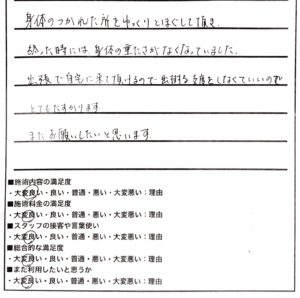 身体のつかれた所をゆっくりとほぐして頂き、
終った時には、身体の重たさがなくなっていました。
出張で自宅に来て頂けるので出掛ける支度をしなくていいので
とてもたすかります
またお願いしたいと思います。
■施術内容の満足度
・大変良い・良い・普通・悪い・大変悪い：理由
■施術料金の満足度
・大変良い・良い・普通・悪い・大変悪い：理由
■スタッフの接客や言葉使い
・大変良い・良い・普通・悪い・大変悪い：理由
■総合的な満足度
・大変良い・良い・普通・悪い・大変悪い：理由
■また利用したいと思うか
・大変良い・良い・普通・悪い・大変悪い：理由